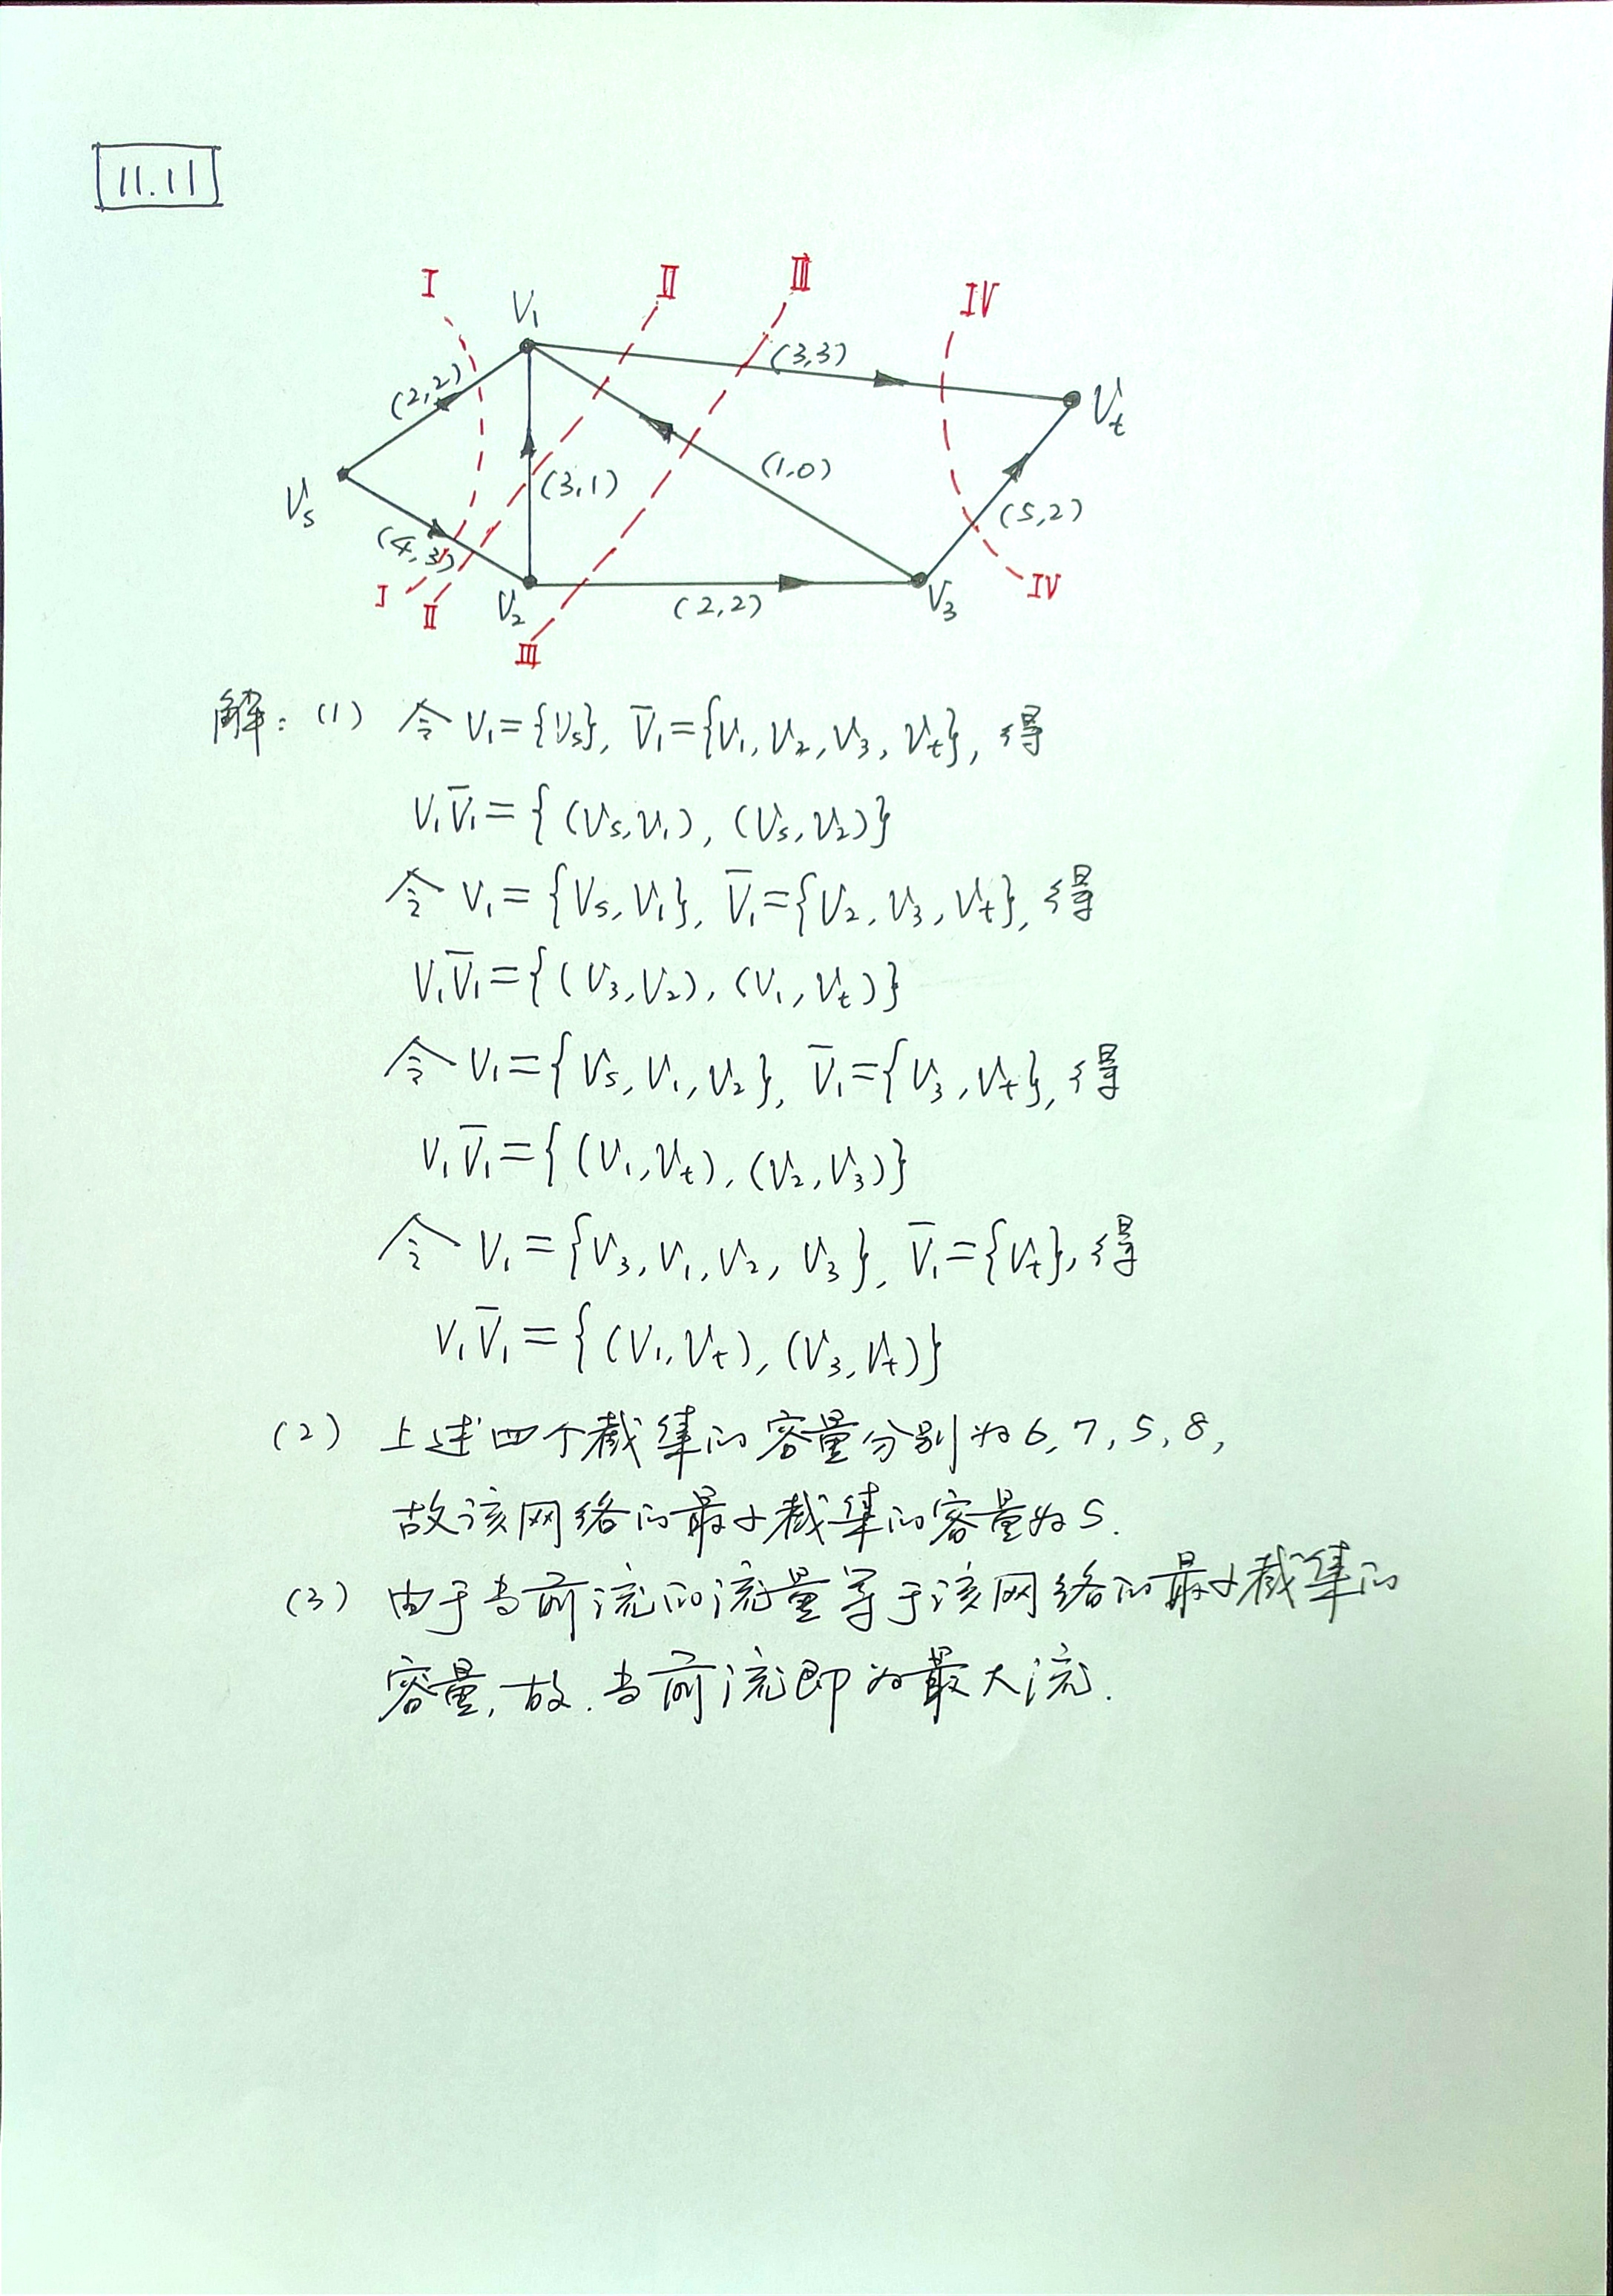 11.11
I II III IV
V₁
(2,2) (3,3)
Vₜ
(3,1) (1,0)
Vₛ
(4,3) (5,2)
I II V₂ (2,2) V₃ IV
III
解: (1) 令 V₁={Vₛ}, V̄₁={V₁, V₂, V₃, Vₜ}, 得
V₁V̄₁={(Vₛ,V₁), (Vₛ,V₂)}
令 V₁={Vₛ, V₁}, V̄₁={V₂, V₃, Vₜ}, 得
V₁V̄₁={(V₃,V₂), (V₁,Vₜ)}
令 V₁={Vₛ, V₁, V₂}, V̄₁={V₃, Vₜ}, 得
V₁V̄₁={(V₁,Vₜ), (V₂,V₃)}
令 V₁={V₃, V₁, V₂, V₃}, V̄₁={Vₜ}, 得
V₁V̄₁={(V₁,Vₜ), (V₃,Vₜ)}
(2) 上述四个截集的容量分别为6, 7, 5, 8,
故该网络的最小截集的容量为5.
(3) 由于当前流的流量等于该网络的最小截集的
容量, 故. 当前流即为最大流.